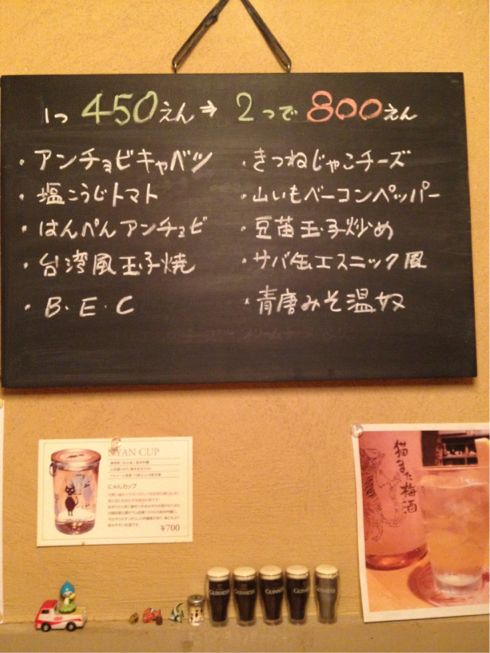 1つ 450えん⇒2つで800えん
・アンチョビキャベツ
・塩こうじトマト
・はんぺんアンチョビ
・台湾風玉子焼
・B.E.C
・きつねじゃこチーズ
・山いもベーコンペッパー
・豆苗玉子炒め
・サバ缶エスニック風
・青唐みそ温奴
NYAN CUP
にゃんカップ
¥700
猫また梅酒
GUINNESS
GUINNESS
GUINNESS
GUINNESS
GUINNESS